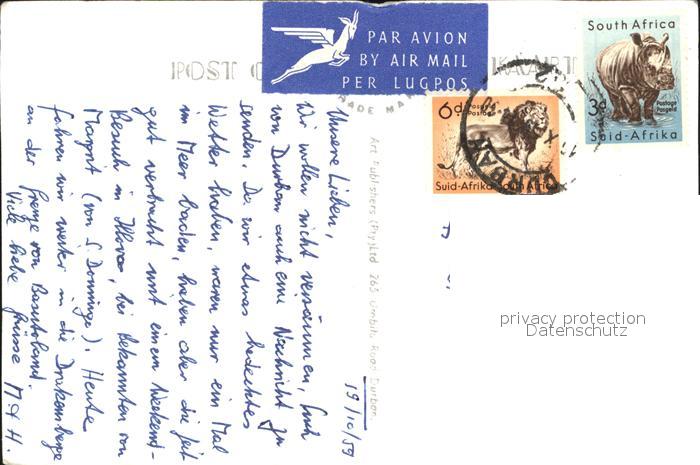 PAR AVION
BY AIR MAIL
PER LUGPOS
South Africa
3d
Postage
Posgeld
Suid-Afrika
6d
Postage
Posgeld
Suid-Afrika South Africa
DURBAN
POST
KAART
TRADE MARK
Art Publishers (Pty) Ltd. 265 Umbilo Road Durban.
19/10/59
Unsere Lieben,
Wir wollen nicht versäumen, Euch
von Durban auch eine Nachricht zu
senden. Da wir etwas bedecktes
Wetter haben, waren nur ein Mal
im Meer baden, haben aber die Zeit
gut verbracht mit einem Weekend-
Besuch in Illovo, bei Bekannten von
Margrit (von S. Domingo). Heute
fahren wir weiter in die Drakensberge
an der Grenze von Basutoland.
Viele liebe Grüsse M & H.
privacy protection
Datenschutz